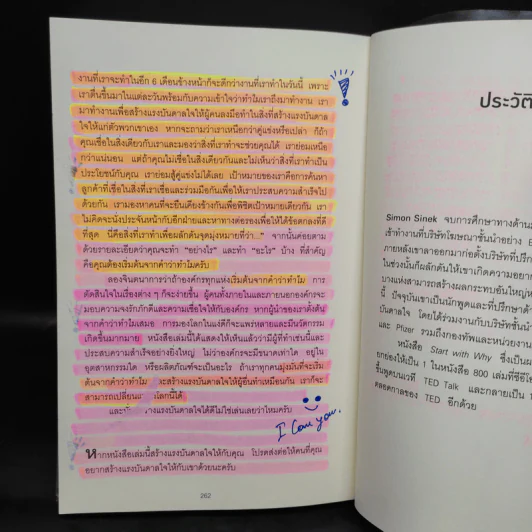 งานที่เราจะทำในอีก 6 เดือนข้างหน้าก็จะดีกว่างานที่เราทำในวันนี้ เพราะ
เราตื่นขึ้นมาในแต่ละวันพร้อมกับความเข้าใจว่าทำไมเราถึงมาทำงาน เรา
มาทำงานเพื่อสร้างแรงบันดาลใจให้ผู้คนลงมือทำในสิ่งที่สร้างแรงบันดาล
ใจให้แก่ตัวพวกเขาเอง หากจะถามว่าเราเหนือกว่าคู่แข่งหรือเปล่า ก็ถ้า
คุณเชื่อในสิ่งเดียวกับเราและมองว่าสิ่งที่เราทำจะช่วยคุณได้ เราย่อมเหนือ
กว่าแน่นอน แต่ถ้าคุณไม่เชื่อในสิ่งเดียวกันและไม่เห็นว่าสิ่งที่เราทำเป็น
ประโยชน์กับคุณ เราย่อมสู้คู่แข่งไม่ได้เลย เป้าหมายของเราคือการค้นหา
ลูกค้าที่เชื่อในสิ่งที่เราเชื่อและร่วมมือกันเพื่อให้เราประสบความสำเร็จไป
ด้วยกัน เรามองหาคนที่จะยืนเคียงข้างกันเพื่อพิชิตเป้าหมายเดียวกัน เรา
ไม่คิดจะนั่งประจันหน้ากับอีกฝ่ายและหาทางต่อรองเพื่อให้ได้ข้อตกลงที่ดี
ที่สุด นี่คือสิ่งที่เราทำเพื่อผลักดันจุดมุ่งหมายที่ว่า..." จากนั้นค่อยตาม
ด้วยรายละเอียดว่าคุณจะทำ "อย่างไร" และทำ "อะไร" บ้าง ที่สำคัญ
คือคุณต้องเริ่มต้นจากคำว่าทำไมครับ
ลองจินตนาการว่าถ้าองค์กรทุกแห่งเริ่มต้นจากคำว่าทำไม การ
ตัดสินใจในเรื่องต่าง ๆ ก็จะง่ายขึ้น ผู้คนทั้งภายในและภายนอกองค์กรจะ
มอบความจงรักภักดีและความเชื่อใจให้กับองค์กร หากผู้นำของเราตั้งต้น
จากคำว่าทำไมเสมอ การมองโลกในแง่ดีก็จะแพร่หลายและมีนวัตกรรม
เกิดขึ้นมากมาย หนังสือเล่มนี้ได้แสดงให้เห็นแล้วว่ามีผู้ที่ทำเช่นนี้และ
ประสบความสำเร็จอย่างยิ่งใหญ่ ไม่ว่าองค์กรจะมีขนาดเท่าใด อยู่ใน
อุตสาหกรรมใด หรือผลิตภัณฑ์จะเป็นอะไร ถ้าเราทุกคนมุ่งมั่นที่จะเริ่ม
ต้นจากคำว่าทำไม จะสร้างแรงบันดาลใจให้ผู้อื่นทำเหมือนกัน เราก็จะ
สามารถเปลี่ยนแปลงโลกนี้ได้
และนั่นแรงบันดาลใจได้ดีไม่ใช่เล่นเลยว่าไหมครับ
I Can you.
หากหนังสือเล่มนี้สร้างแรงบันดาลใจให้กับคุณ โปรดส่งต่อให้คนที่คุณ
อยากสร้างแรงบันดาลใจให้กับเขาด้วยนะครับ
262
ประวัติ
Simon Sinek จบการศึกษาทางด้าน
เข้าทำงานที่บริษัทโฆษณาชั้นนำอย่าง
ภายหลังเขาลาออกมาก่อตั้งบริษัทที่ปรึก
ในช่วงนั้นก็ผลักดันให้เขาเกิดความอยาก
บางแห่งสามารถสร้างผลกระทบอันใหญ่ห
นี้ ปัจจุบันเขาเป็นนักพูดและที่ปรึกษาด้า
บันดาลใจ โดยได้ร่วมงานกับบริษัทชั้นนำ
และ Pfizer รวมถึงกองทัพและหน่วยงาน
หนังสือ Start with Why ซึ่งเป็นผ
ยกย่องให้เป็น 1 ในหนังสือ 800 เล่มที่ซีอีโ
ขึ้นพูดบนเวที TED Talk และกลายเป็น 1
ตลอดกาลของ TED อีกด้วย